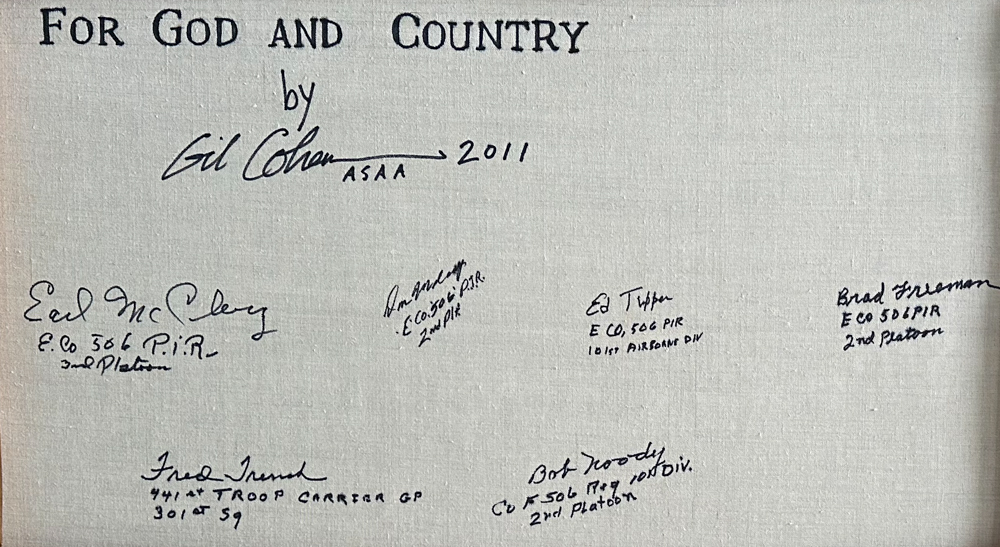 FOR GOD AND COUNTRY
by
Gil Cohen 2011
ASAA
Earl McClung
E. Co 506 P.I.R.
3rd Platoon
E Co. 506 P.I.R.
2nd Plt
Ed Tipper
E CO, 506 PIR
101ST AIRBORNE DIV
Brad Freeman
E CO 506 PIR
2nd Platoon
Fred Trenck
441st TROOP CARRIER GP
301st Sq
Bob Noody
Co F 506 Reg 101st Div.
2nd Platoon